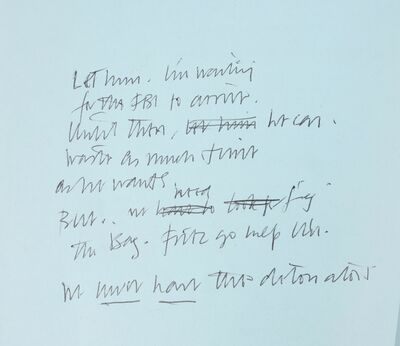 Let him. I'm waiting
for the FBI to arrive.
Until then, let him he can.
waste as much time
as he wants
But.. we need have to look for
the bag. Fritz go help Uli.
We must have those detonators